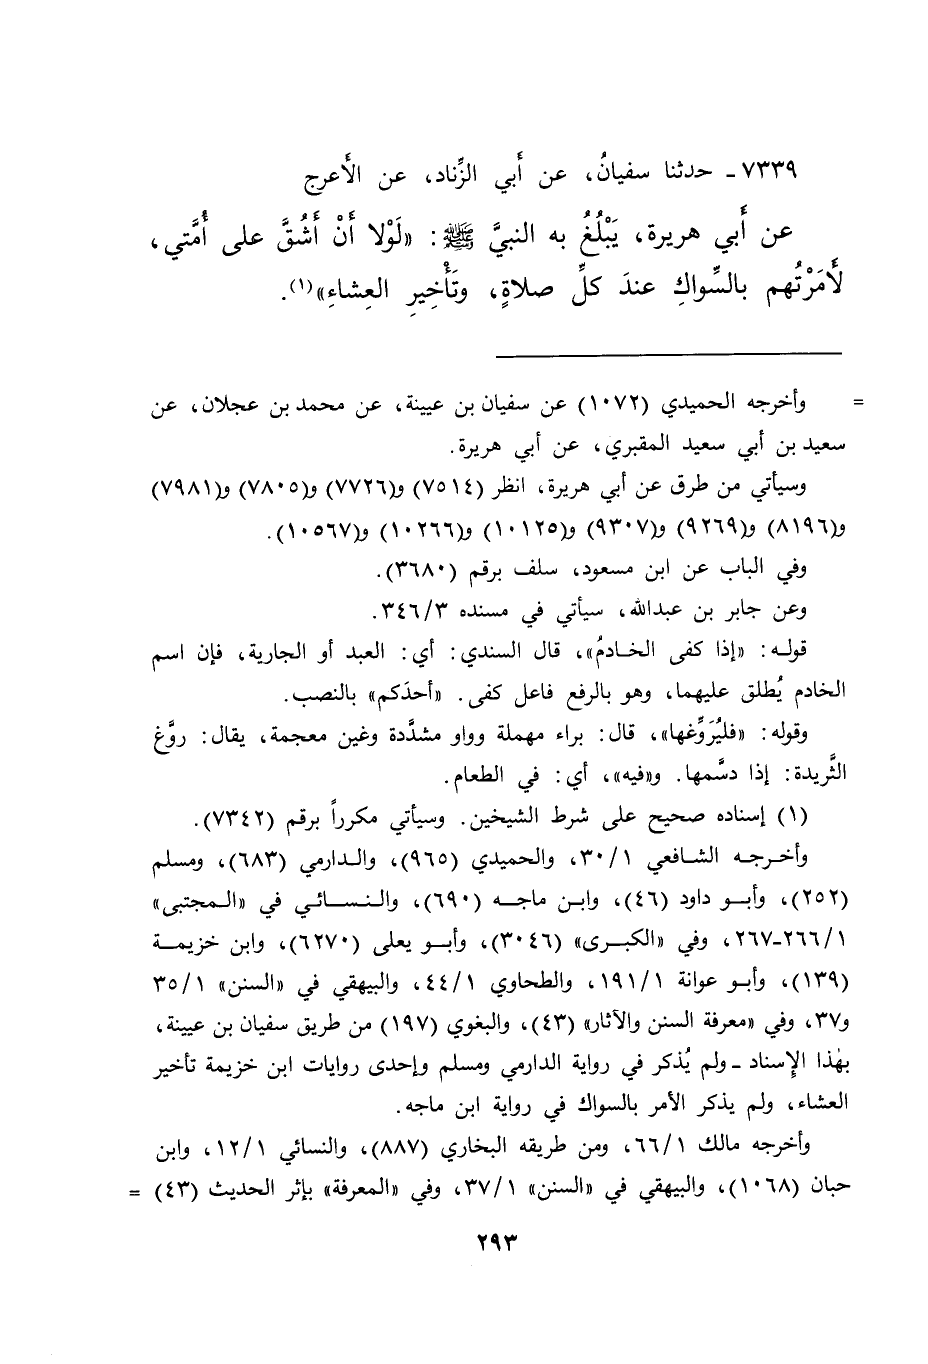 ٧٣٣٩ـ حدثنا سفيانُ، عن أَبي الزِّناد، عن الأَعرج
عن أَبي هريرة، يَبْلُغُ به النبيَّ ﷺ: «لَوْلا أَنْ أَشُقَّ على أُمَّتي،
لأَمَرْتُهم بالسِّواكِ عندَ كلِّ صلاةٍ، وتَأْخِيرِ العِشاءِ»(١).
= وأخرجه الحميدي (١٠٧٢) عن سفيان بن عيينة، عن محمد بن عجلان، عن
سعيد بن أبي سعيد المقبري، عن أبي هريرة.
وسيأتي من طرق عن أبي هريرة، انظر (٧٥١٤) و(٧٧٢٦) و(٧٨٠٥) و(٧٩٨١)
و(٨١٩٦) و(٩٢٦٩) و(٩٣٠٧) و(١٠١٢٥) و(١٠٢٦٦) و(١٠٥٦٧).
وفي الباب عن ابن مسعود، سلف برقم (٣٦٨٠).
وعن جابر بن عبدالله، سيأتي في مسنده ٣٤٦/٣.
قوله: «إذا كفى الخادمُ»، قال السندي: أي: العبد أو الجارية، فإن اسم
الخادم يُطلق عليهما، وهو بالرفع فاعل كفى. «أحدَكم» بالنصب.
وقوله: «فليُرَوِّغها»، قال: براء مهملة وواو مشدَّدة وغين معجمة، يقال: روَّغ
الثَّريدة: إذا دسَّمها. و«فيه»، أي: في الطعام.
(١) إسناده صحيح على شرط الشيخين. وسيأتي مكرراً برقم (٧٣٤٢).
وأخرجه الشافعي ٣٠/١، والحميدي (٩٦٥)، والدارمي (٦٨٣)، ومسلم
(٢٥٢)، وأبو داود (٤٦)، وابن ماجه (٦٩٠)، والنسائي في «المجتبى»
٢٦٦/١-٢٦٧، وفي «الكبرى» (٣٠٤٦)، وأبو يعلى (٦٢٧٠)، وابن خزيمة
(١٣٩)، وأبو عوانة ١٩١/١، والطحاوي ٤٤/١، والبيهقي في «السنن» ٣٥/١
و٣٧، وفي «معرفة السنن والآثار» (٤٣)، والبغوي (١٩٧) من طريق سفيان بن عيينة،
بهٰذا الإسناد ـ ولم يُذكر في رواية الدارمي ومسلم وإحدى روايات ابن خزيمة تأخير
العشاء، ولم يذكر الأمر بالسواك في رواية ابن ماجه.
وأخرجه مالك ٦٦/١، ومن طريقه البخاري (٨٨٧)، والنسائي ١٢/١، وابن
حبان (١٠٦٨)، والبيهقي في «السنن» ٣٧/١، وفي «المعرفة» بإثر الحديث (٤٣) =
٢٩٣